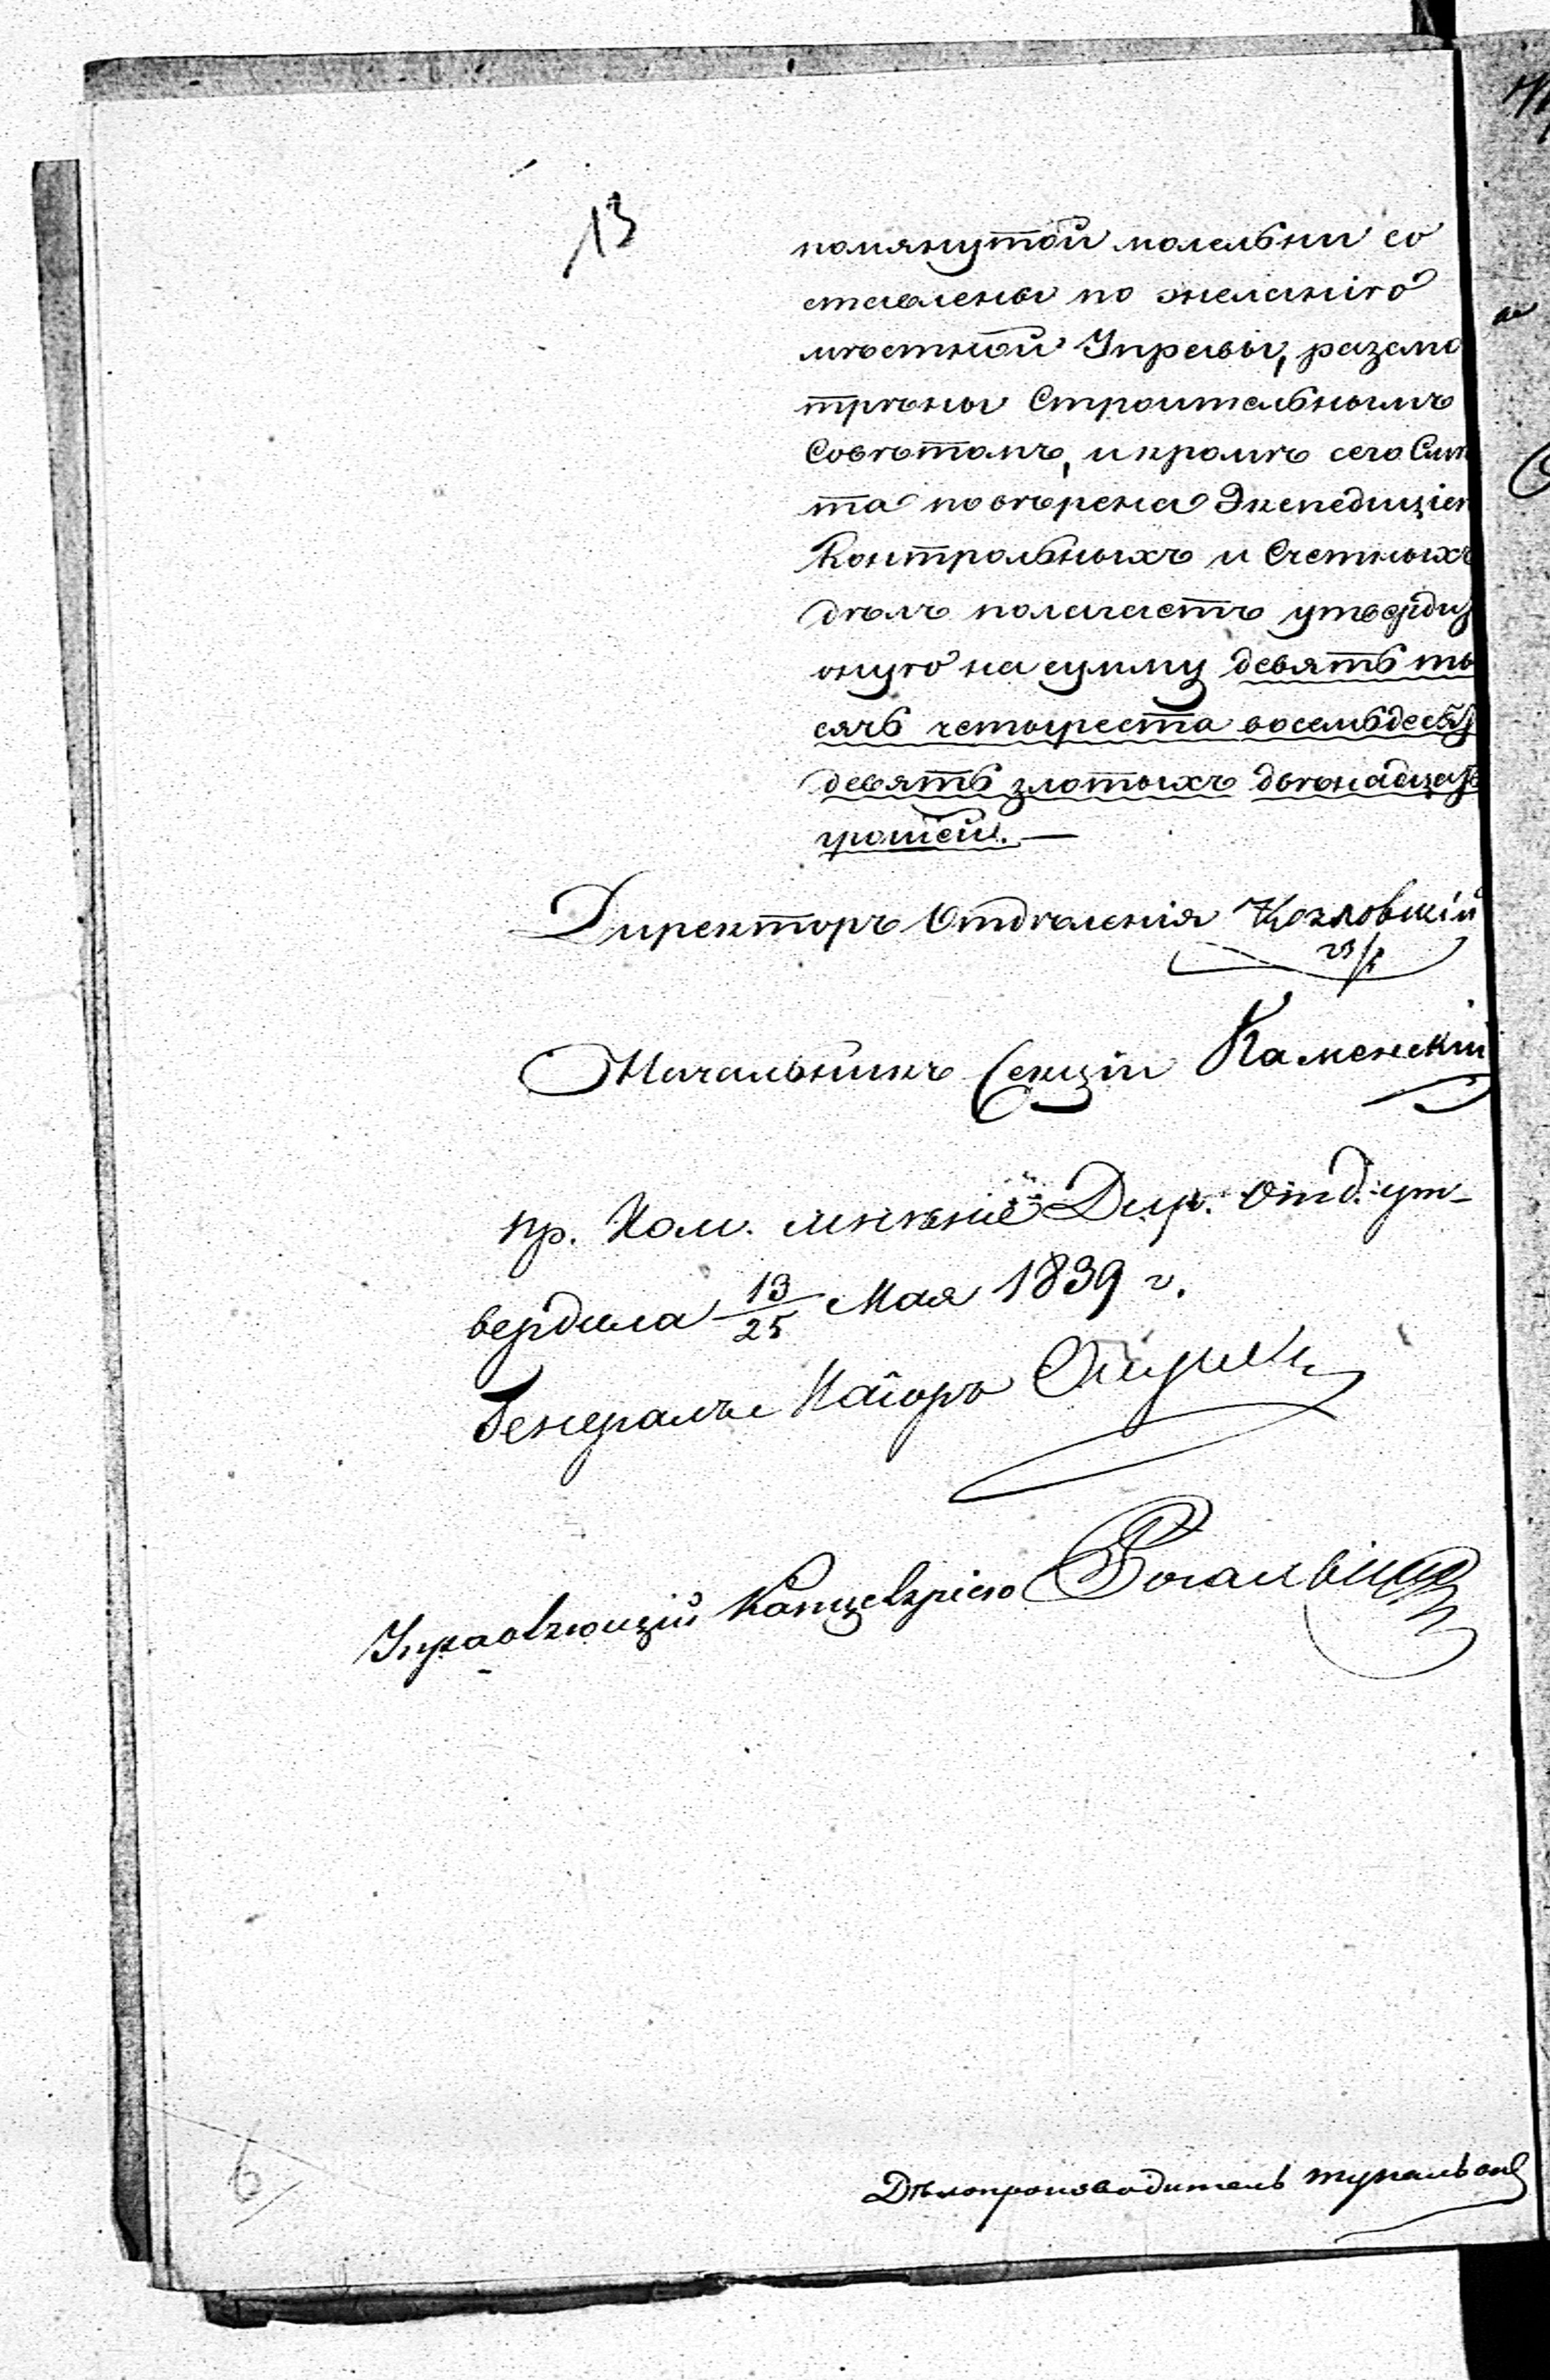 13
помянутой молельни со
ставлены по желанію
мѣстной Управы, разсмо
трѣны Строительнымъ
Совѣтомъ, и кромѣ сего Смѣ
та повѣрена Экспедиціею
Контрольныхъ и Счетныхъ
дѣлъ полагаетъ утвердить
оную на сумму девять ты
сячъ четыреста восемьдесятъ
девять злотыхъ двѣнадцать
грошей. —
Директоръ Отдѣленія Козловскій
23/5
Начальникъ Секціи Каменскій
пр. Ком. мнѣніе Дир. Отд. ут-
вердила 13/25 Мая 1839 г.
Генералъ Маіоръ
Управляющій Канцеляріею
6
Дѣлопроизводитель